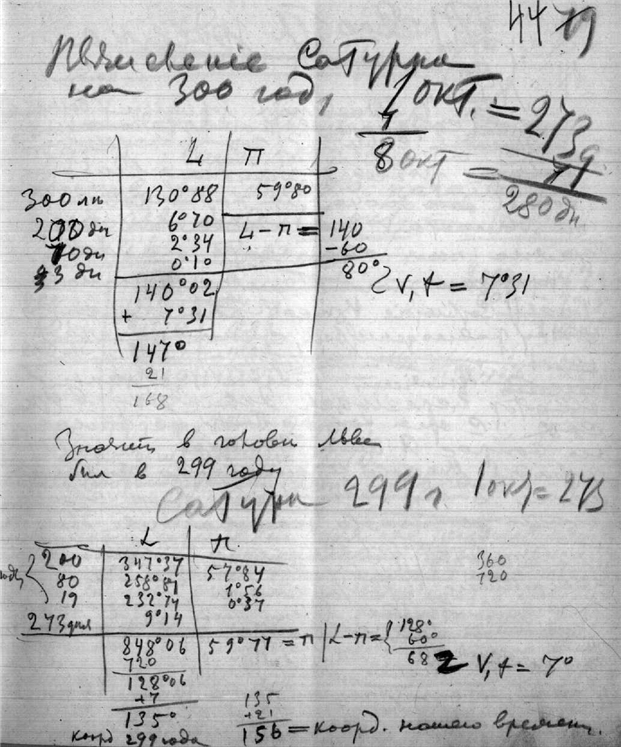 44 79
Сатурна
на 300 год,
1 окт. = 273
7
8 окт = 7
280 дн.
L П
300 лп 130°88 59°80
200 дн 6°70 L-П= 140
70 дн 2°34 -60
3 дн 0°10 80°
140°02 V, t = 7°31
+ 7°31
147°
21
168
Значитъ в голове Льва
был в 299 году
Сатурн 299 г. 1 окт= 273
L П
200 347°37 57°84
80 258°81 1°56
19 232°74 0°37
273 дня 9°14
360
720
848°06 59°77 = П L-П= 128°
720 60°
128°06 68 V, t = 7°
+7
135° 135
+21
коорд 299 года 156 = коорд. нашего времени.